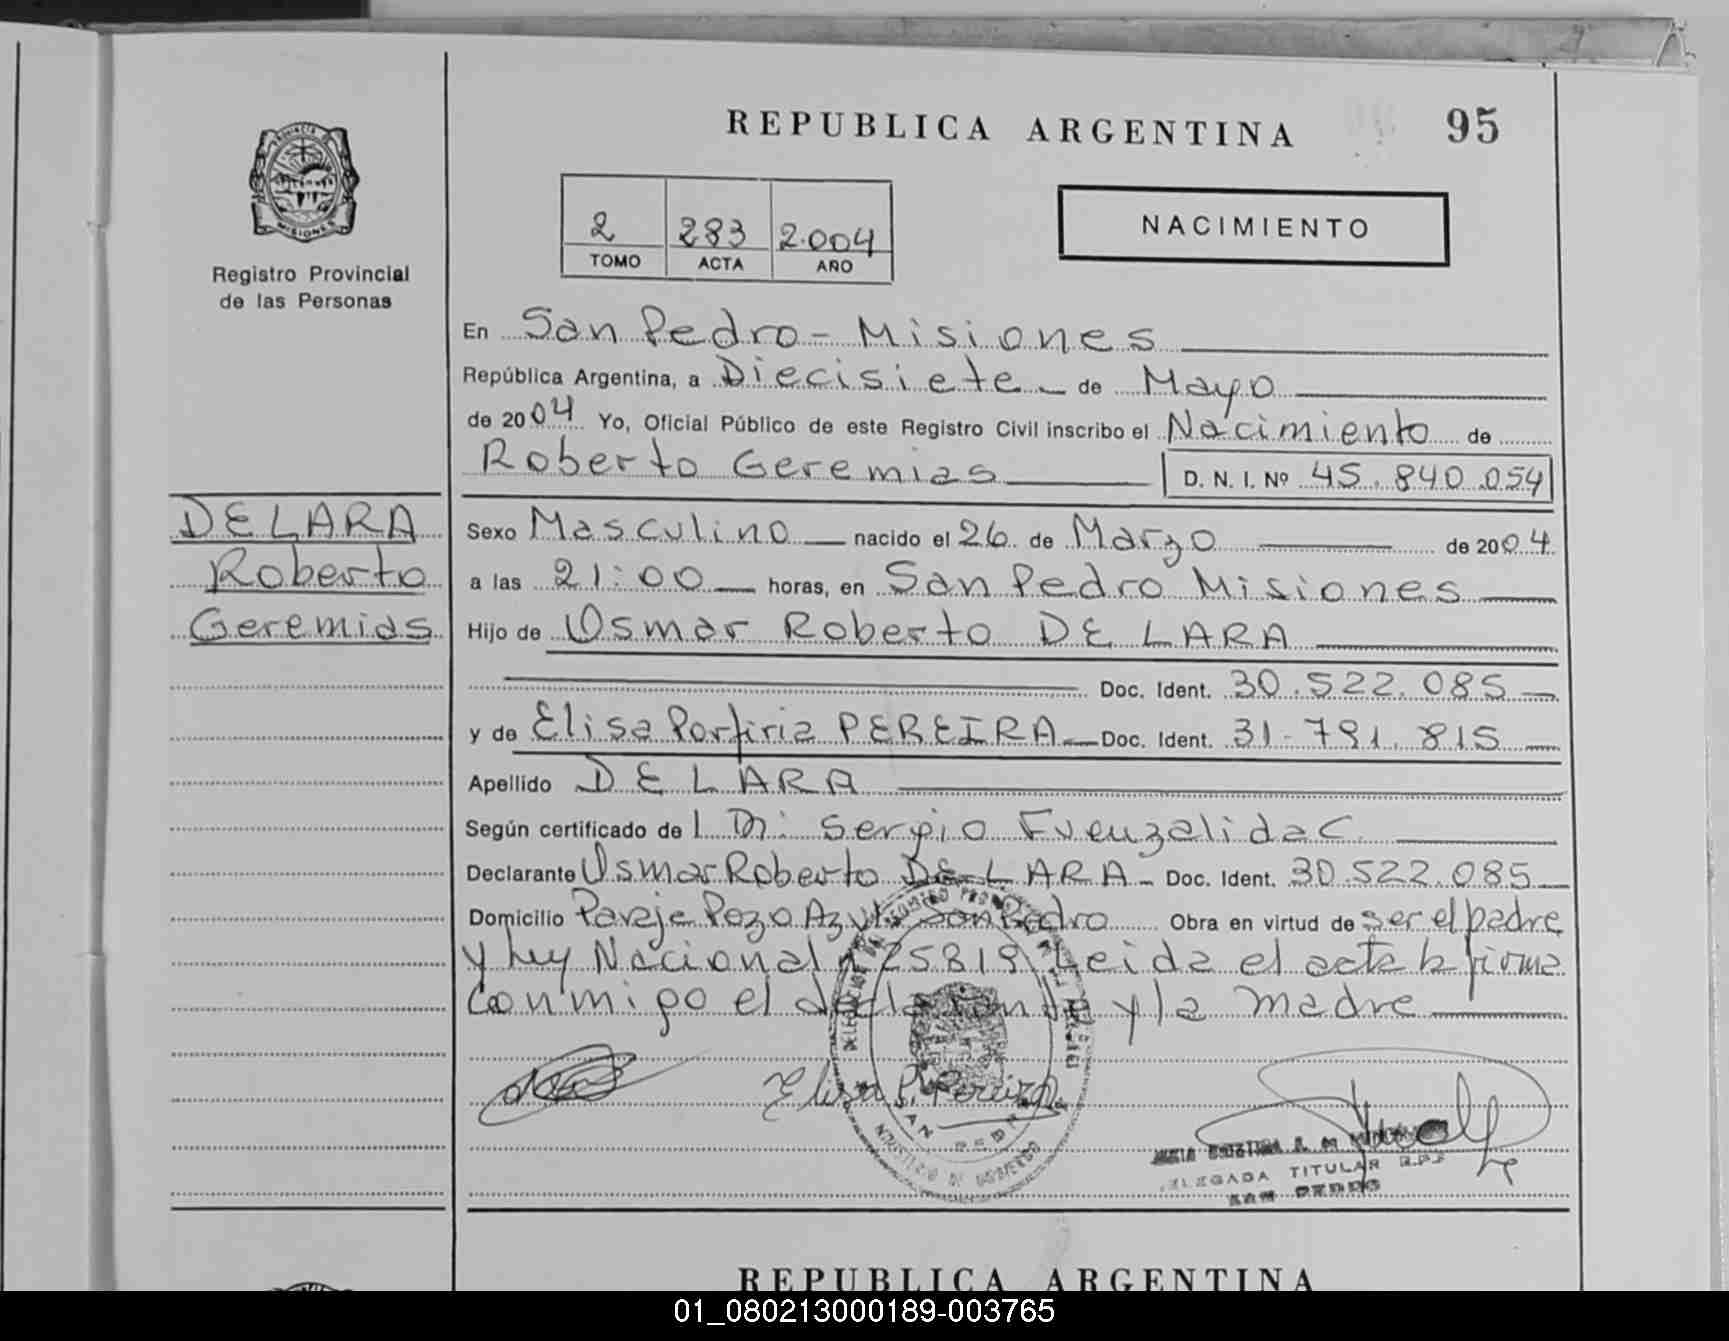 REPUBLICA ARGENTINA 95
PROVINCIA DE
MISIONES
Registro Provincial
de las Personas
2 283 2.004
TOMO ACTA AÑO
NACIMIENTO
En San Pedro - Misiones
República Argentina, a Diecisiete de Mayo
de 2004 Yo, Oficial Público de este Registro Civil inscribo el Nacimiento de
Roberto Geremias D. N. I. Nº 45.840.054
DE LARA
Roberto
Geremias
Sexo Masculino nacido el 26 de Marzo de 2004
a las 21:00 horas, en San Pedro Misiones
Hijo de Osmar Roberto DE LARA
Doc. Ident. 30.522.085
y de Elisa Porfiria PEREIRA Doc. Ident. 31.791.815
Apellido DE LARA
Según certificado de Sergio Fuenzalida C.
Declarante Osmar Roberto DE LARA - Doc. Ident. 30.522.085
Domicilio Paraje Pozo Azul San Pedro Obra en virtud de ser el padre
y Ley Nacional 25819 Leida el acta la firma
conmigo el declarante y la madre
Elisa P. Pereira
SAN PEDRO
MINISTERIO DE GOBIERNO
DELEGADA TITULAR R.P.P
SAN PEDRO
REPUBLICA ARGENTINA
01_080213000189-003765